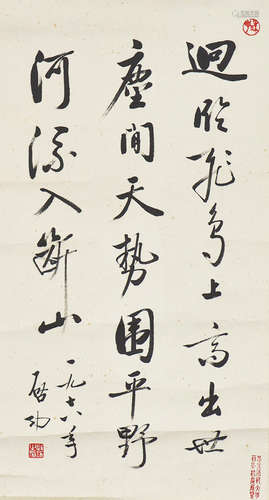 迥臨飛鳥上高出世
塵間天勢圍平野
河流入斷山
一九七八年
啓功